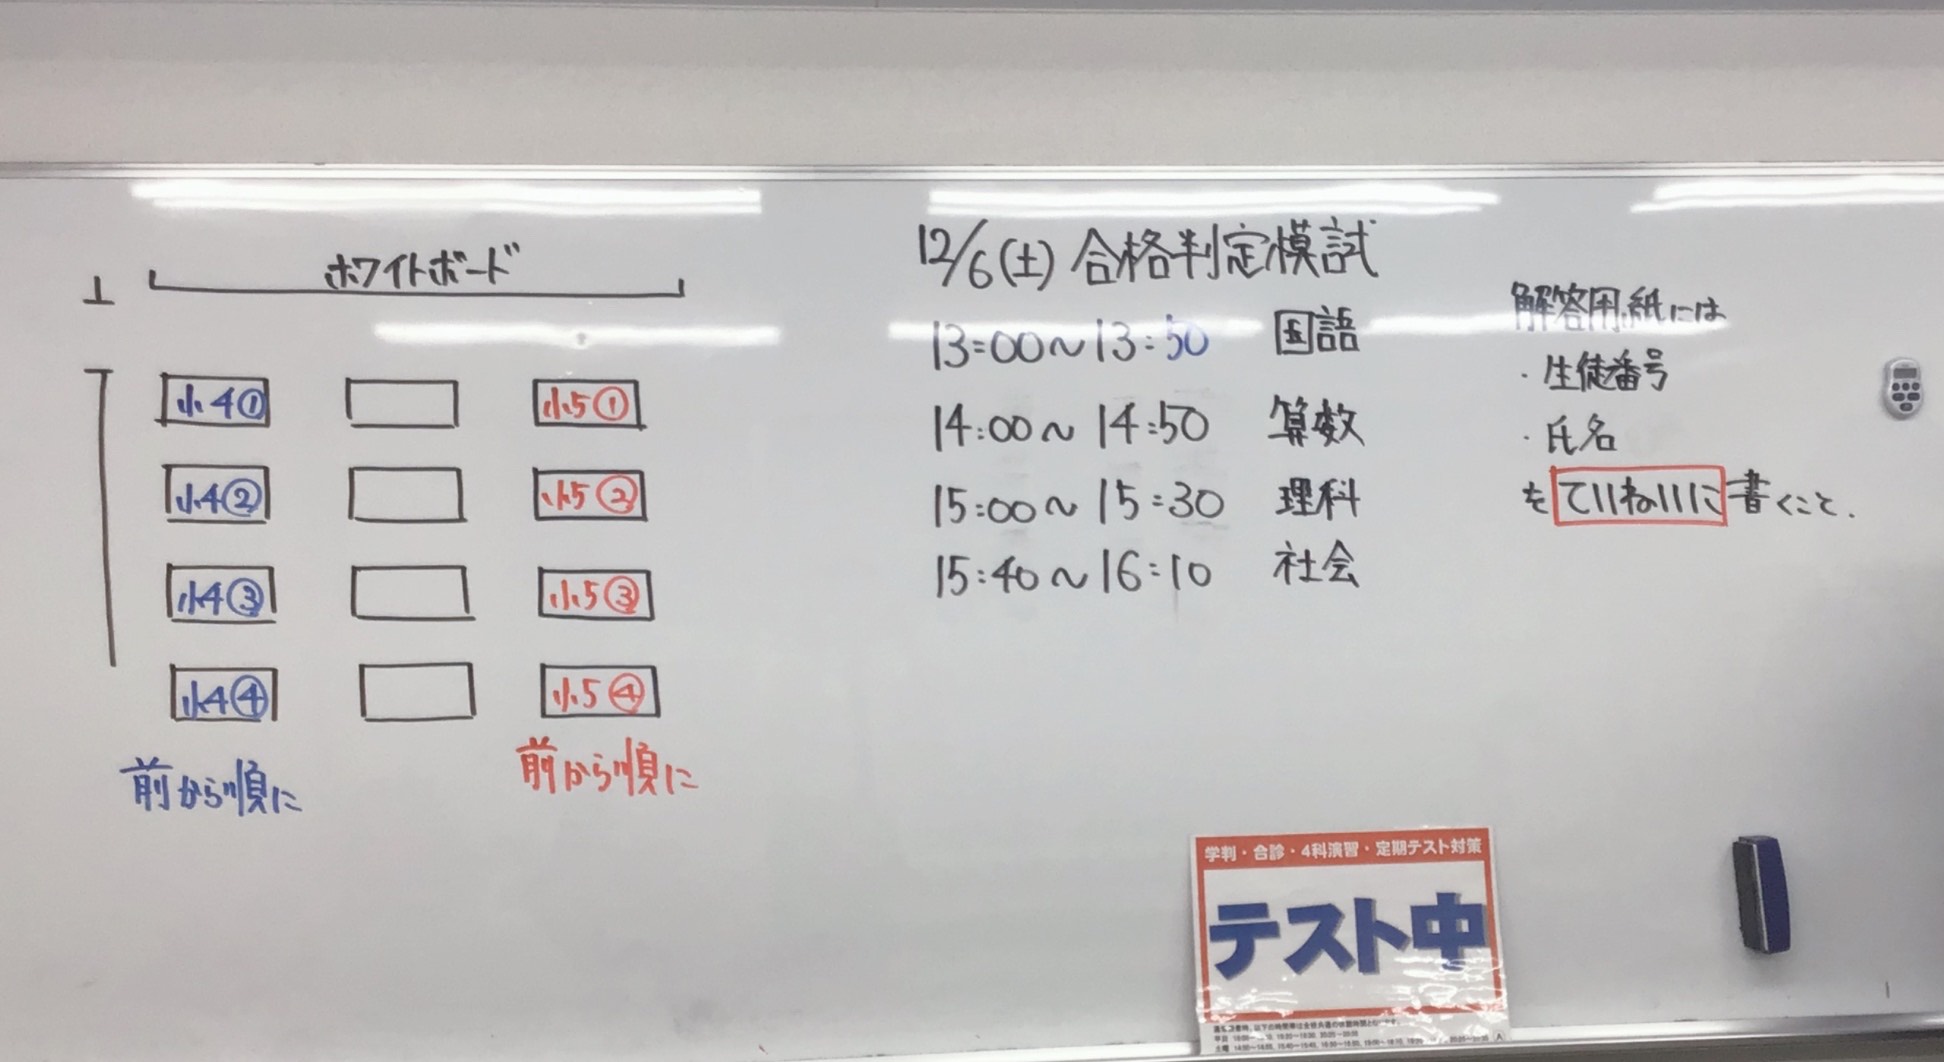 ホワイトボード
小4① 小5①
小4② 小5②
小4③ 小5③
小4④ 小5④
前から順に 前から順に
12/6(土) 合格判定模試
13:00～13:50 国語
14:00～14:50 算数
15:00～15:30 理科
15:40～16:10 社会
解答用紙には
・生徒番号
・氏名
をていねいに書くこと.
学判・合診・4科演習・定期テスト対策
テスト中